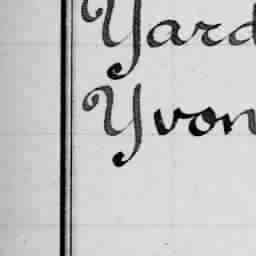 Yard
Yvon